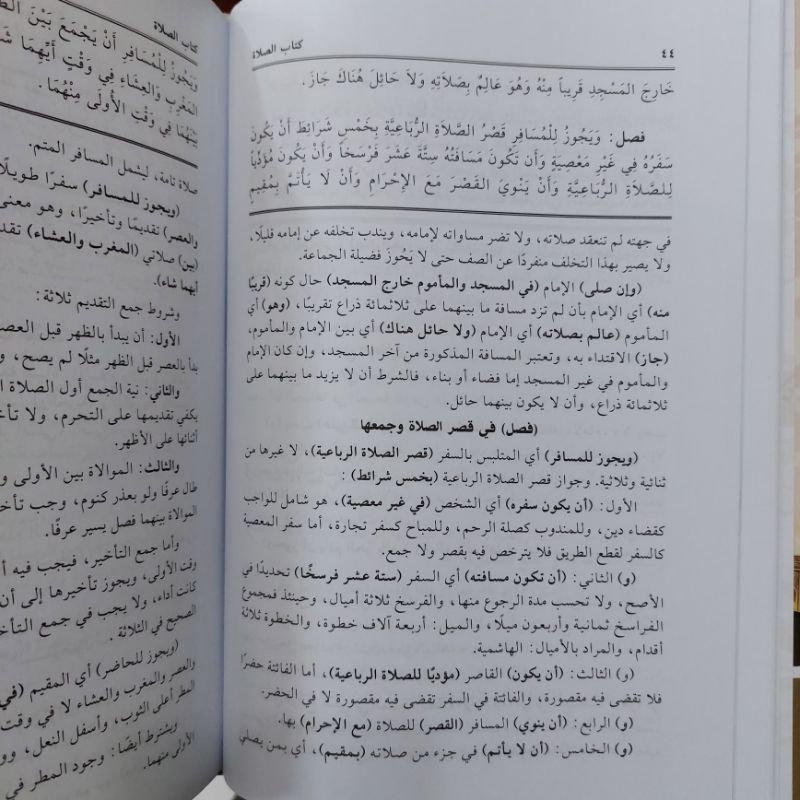 ٤٤ كتاب الصلاة
خَارِجَ المَسْجِدِ قَرِيباً مِنْهُ وَهُوَ عَالِمٌ بِصَلاَتِهِ وَلاَ حَائِلَ هُنَاكَ جَازَ.
فصل: وَيَجُوزُ لِلْمُسَافِرِ قَصْرُ الصَّلاَةِ الرُّبَاعِيَّةِ بِخَمْسِ شَرَائِطَ أَنْ يَكُونَ
سَفَرُهُ فِي غَيْرِ مَعْصِيَةٍ وَأَن تَكُونَ مَسَافَتُهُ سِتَّةَ عَشَرَ فَرْسَخاً وَأَنْ يَكُونَ مُؤَدِّياً
لِلصَّلاَةِ الرُّبَاعِيَّةِ وَأَنْ يَنْوِيَ القَصْرَ مَعَ الإِحْرَامِ وَأَنْ لاَ يَأْتَمَّ بِمُقِيمٍ
في جهته لم تنعقد صلاته، ولا تضر مساواته لإمامه، ويندب تخلفه عن إمامه قليلًا،
ولا يصير بهذا التخلف منفردًا عن الصف حتى لا يَحُوزَ فضيلة الجماعة.
(وإن صلى) الإمام (في المسجد والمأموم خارج المسجد) حال كونه (قريبًا
منه) أي الإمام بأن لم تزد مسافة ما بينهما على ثلاثمائة ذراع تقريبًا، (وهو) أي
المأموم (عالم بصلاته) أي الإمام (ولا حائل هناك) أي بين الإمام والمأموم،
(جاز) الاقتداء به، وتعتبر المسافة المذكورة من آخر المسجد، وإن كان الإمام
والمأموم في غير المسجد إما فضاء أو بناء، فالشرط أن لا يزيد ما بينهما على
ثلاثمائة ذراع، وأن لا يكون بينهما حائل.
(فصل) في قصر الصلاة وجمعها
(ويجوز للمسافر) أي المتلبس بالسفر (قصر الصلاة الرباعية)، لا غيرها من
ثنائية وثلاثية. وجواز قصر الصلاة الرباعية (بخمس شرائط) :
الأول: (أن يكون سفره) أي الشخص (في غير معصية)، هو شامل للواجب
كقضاء دين، وللمندوب كصلة الرحم، وللمباح كسفر تجارة، أما سفر المعصية
كالسفر لقطع الطريق فلا يترخص فيه بقصر ولا جمع.
(و) الثاني: (أن تكون مسافته) أي السفر (ستة عشر فرسخًا) تحديدًا في
الأصح، ولا تحسب مدة الرجوع منها، والفرسخ ثلاثة أميال، وحينئذ فمجموع
الفراسخ ثمانية وأربعون ميلًا، والميل: أربعة آلاف خطوة، والخطوة ثلاثة
أقدام، والمراد بالأميال: الهاشمية.
(و) الثالث: (أن يكون) القاصر (مؤديًا للصلاة الرباعية)، أما الفائتة حضرًا
فلا تقضى فيه مقصورة، والفائتة في السفر تقضى فيه مقصورة لا في الحضر.
(و) الرابع: (أن ينوي) المسافر (القصر) للصلاة (مع الإحرام) بها.
(و) الخامس: (أن لا يأتم) في جزء من صلاته (بمقيم)، أي بمن يصلي
كتاب الصلاة
وَيَجُوزُ لِلْمُسَافِرِ أَنْ يَجْمَعَ بَيْنَ
المَغْرِبِ وَالعِشَاءِ فِي وَقْتِ أَيِّهِمَا
بَيْنَهُمَا فِي وَقْتِ الأُولَى مِنْهُمَا.
صلاة تامة، ليشمل المسافر المتم.
(ويجوز للمسافر) سفرًا طويلًا
والعصر) تقديمًا وتأخيرًا، وهو معنى
(بين) صلاتي (المغرب والعشاء)
أيهما شاء).
وشروط جمع التقديم ثلاثة:
الأول: أن يبدأ بالظهر قبل العصر
بدأ بالعصر قبل الظهر مثلًا لم يصح،
والثاني: نية الجمع أول الصلاة
يكفي تقديمها على التحرم، ولا
أثنائها على الأظهر.
والثالث: الموالاة بين الأولى
طال عرفًا ولو بعذر كنوم، وجب
الموالاة بينهما فصل يسير عرفًا.
وأما جمع التأخير، فيجب فيه
وقت الأولى، ويجوز تأخيرها إلى أن
كانت أداء، ولا يجب في جمع
الصحيح في الثلاثة.
(ويجوز للحاضر) أي المقيم (في
والعصر والمغرب والعشاء لا في وقت
المطر أعلى الثوب، وأسفل النعل،
ويشترط أيضًا: وجود المطر في
الأولى منهما.